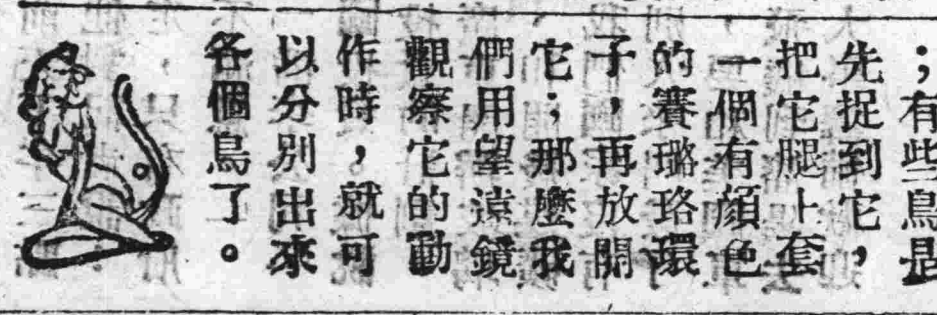 ；有些鳥是
先捉到它，
把它腿上套
一個有顏色
的賽璐珞環
子，再放開
它；那麼我
們用望遠鏡
觀察它的動
作時，就可
以分別出來
各個鳥了。